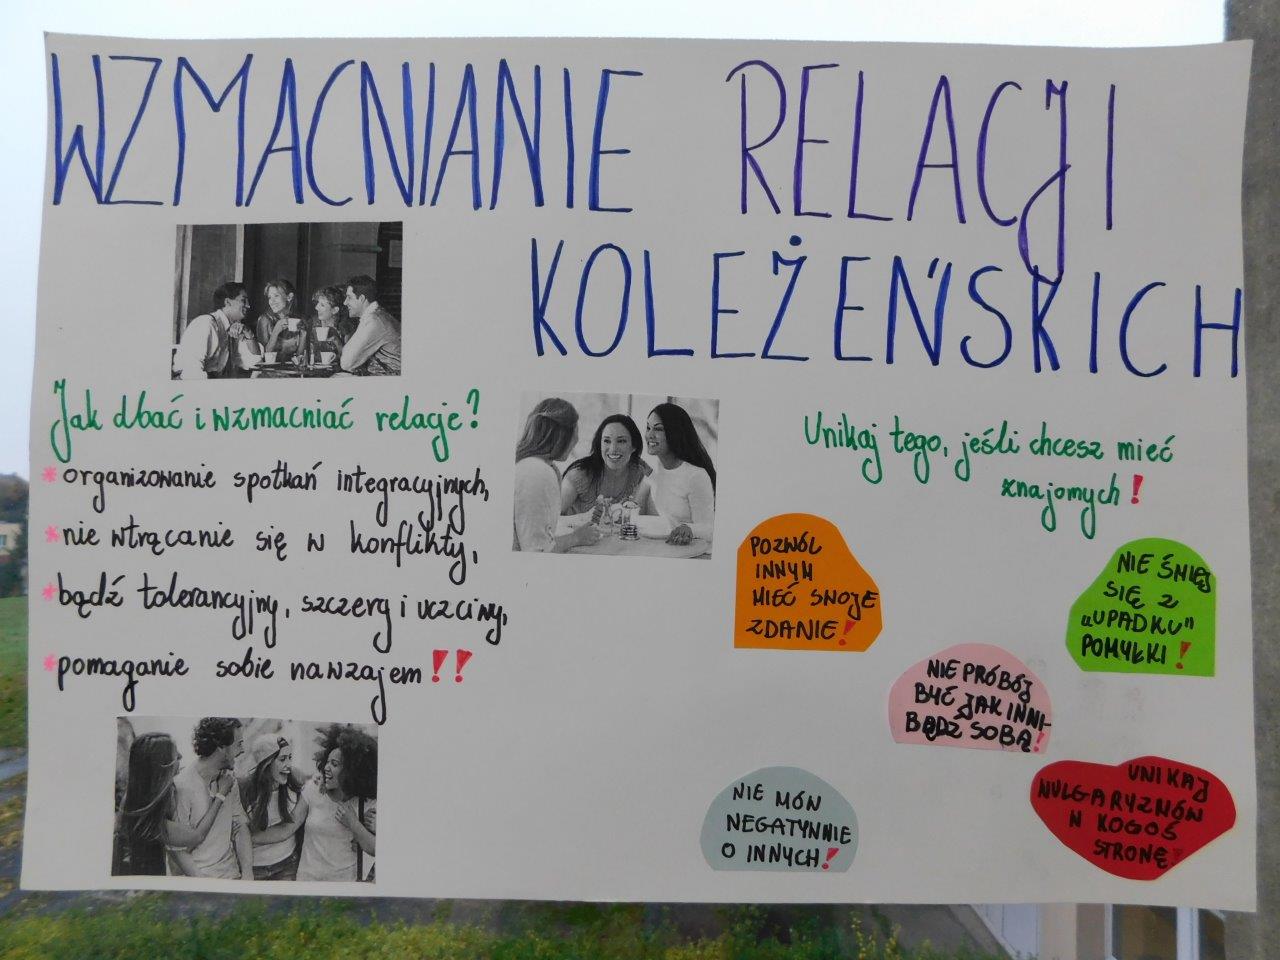 WZMACNIANIE RELACJI
KOLEŻEŃSKICH
Jak dbać i wzmacniać relacje?
*organizowanie spotkań integracyjnych,
*nie wtrącanie się w konflikty,
*bądź tolerancyjny, szczery i uczciwy,
*pomaganie sobie nawzajem!!
Unikaj tego, jeśli chcesz mieć
znajomych!
POZWÓL
INNYM
MIEĆ SWOJE
ZDANIE!
NIE ŚMIEJ
SIĘ Z
"UPADKU"
POMYŁKI!
NIE PRÓBÓJ
BYĆ JAK INNI-
BĄDŹ SOBĄ!
NIE MÓW
NEGATYWNIE
O INNYCH!
UNIKAJ
WULGARYZMÓW
W KOGOŚ
STRONĘ!